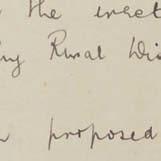 the erect
Rural Dis
proposed